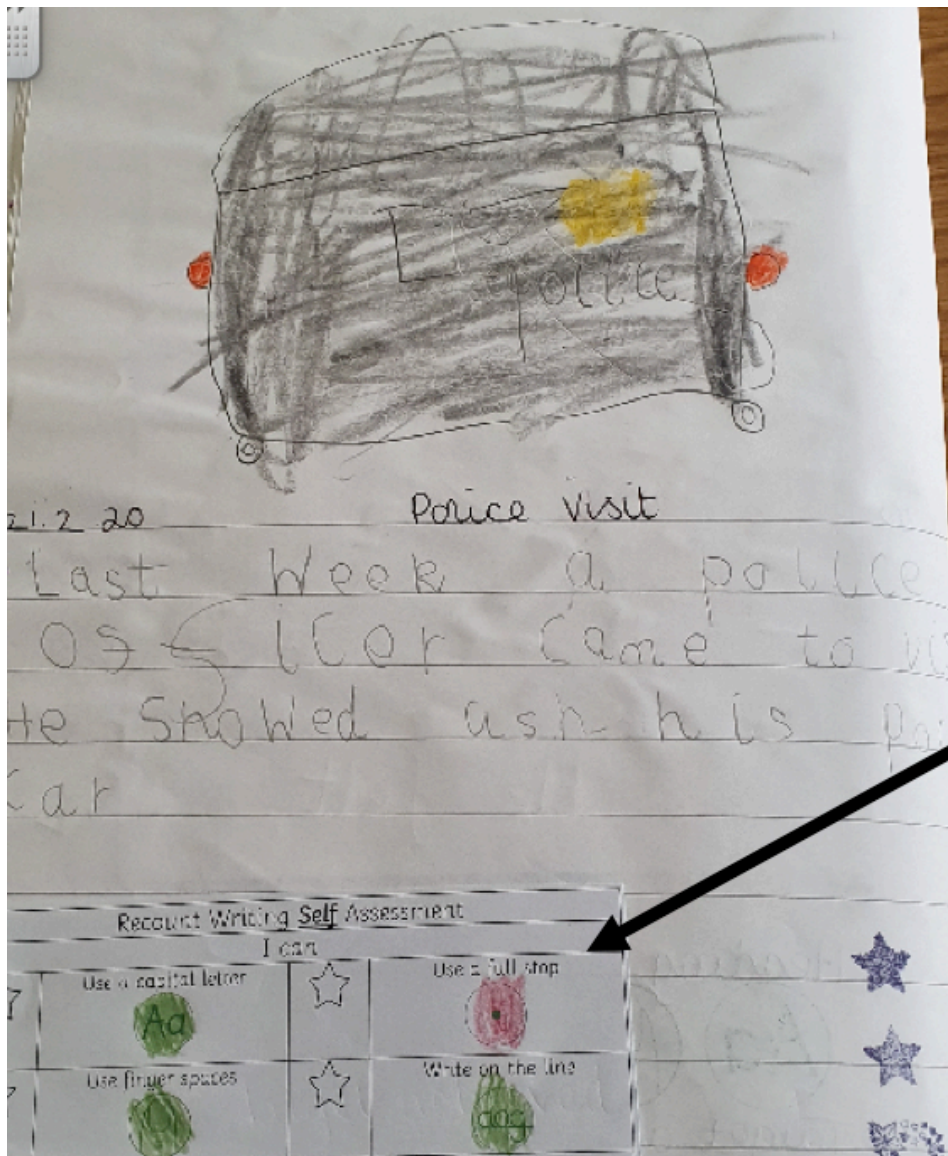 police
21.2 20 Police Visit
Last Week a police
officer came to vi
He Showed ush his
car
Recount Writing Self Assessment
I can
Use a capital letter
Use a full stop
Aa
Use finger spaces
Write on the line
dog